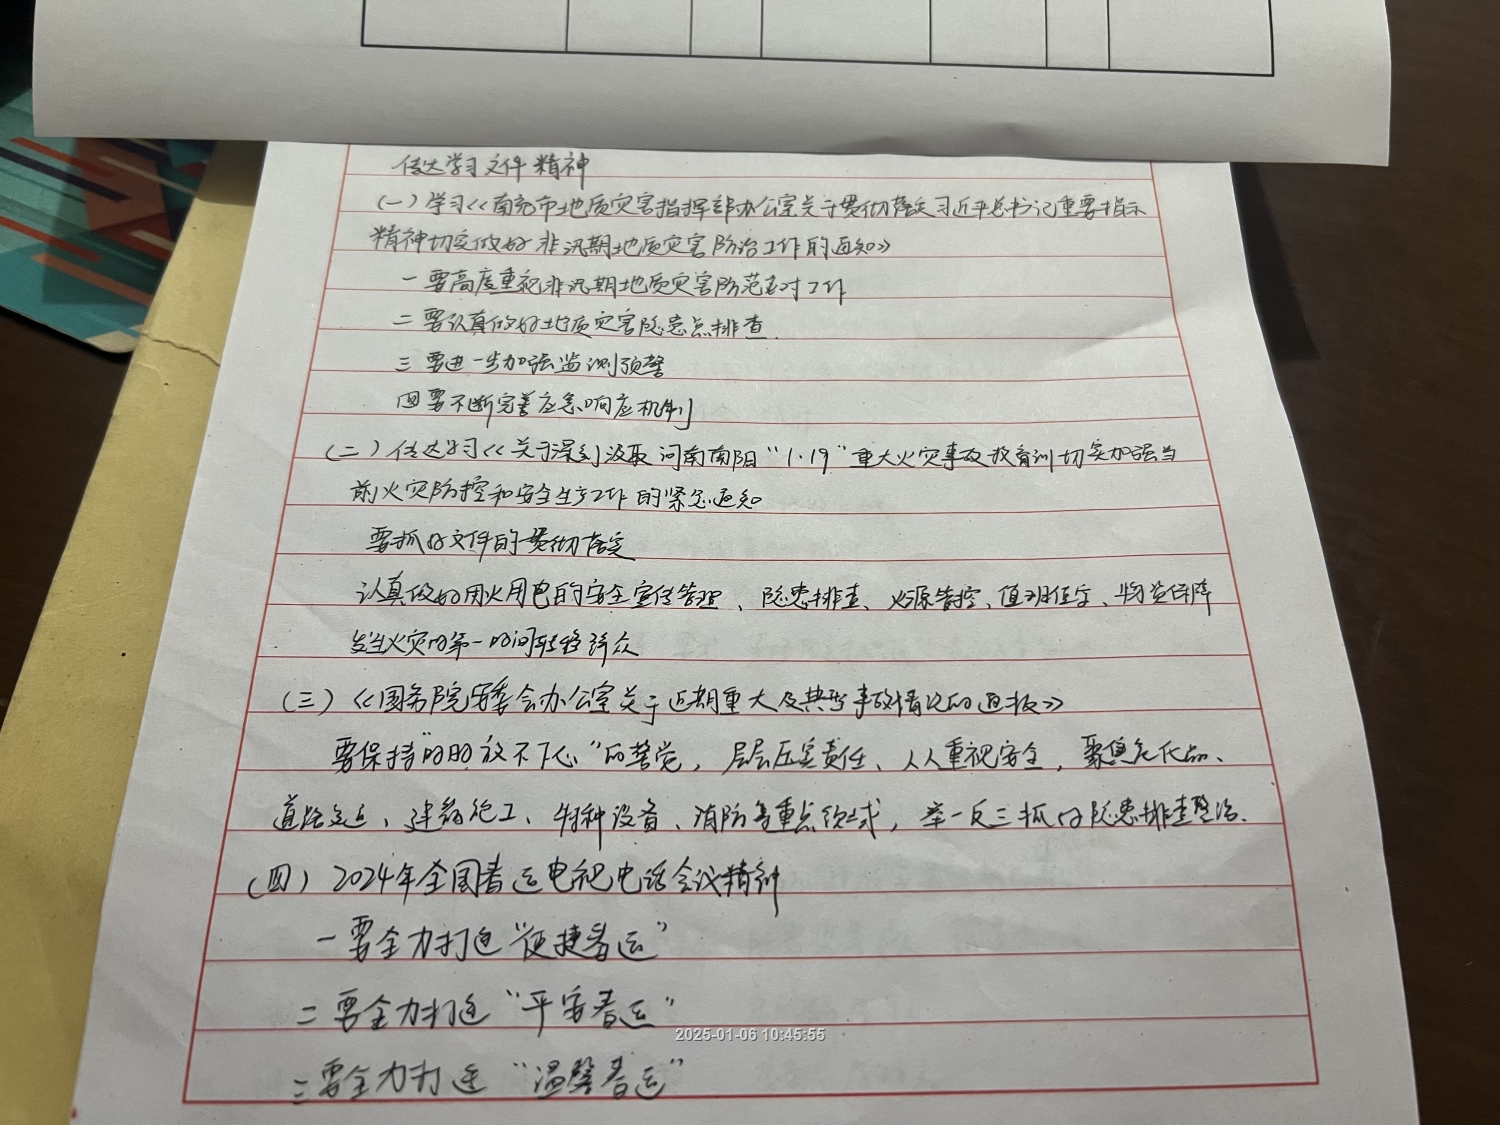 传达学习文件精神
(一)学习《南充市地质灾害指挥部办公室关于贯彻落实习近平总书记重要指示
精神切实做好非汛期地质灾害防治工作的通知》
一要高度重视非汛期地质灾害防范应对工作
二要认真做好地质灾害隐患点排查.
三要进一步加强监测预警
四要不断完善应急响应机制
(二)传达学习《关于深刻汲取河南南阳“1·19”重大火灾事故教育训切实加强当
前火灾防控和安全生产工作的紧急通知
要抓好文件的贯彻落实
认真做好用火用电的安全宣传管理、隐患排查、火源管控、值班值守、物资保障
发生火灾的第一时间转移群众
(三)《国务院安委会办公室关于近期重大及典型事故情况的通报》
要保持“时时放不下心”的警觉,层层压实责任、人人重视安全,聚焦危化品、
道路交通、建筑施工、特种设备、消防等重点领域,举一反三抓好隐患排查整治.
(四)2024年全国春运电视电话会议精神
一要全力打造“便捷春运”
二要全力打造“平安春运”
三要全力打造“温馨春运”
2025-01-06 10:45:55